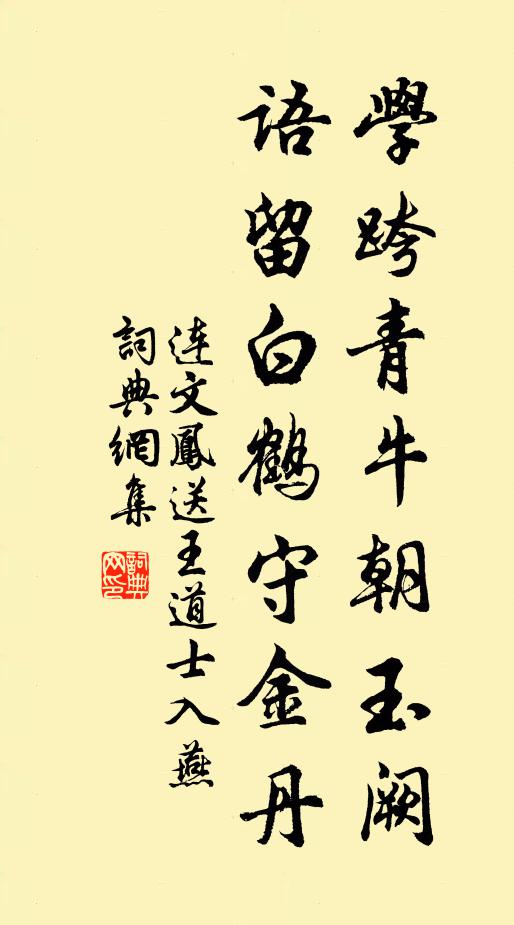 學跨青牛朝玉阙
語留白鶴守金丹
连文鳳送王道士入燕
詞典網集
詞典
网印